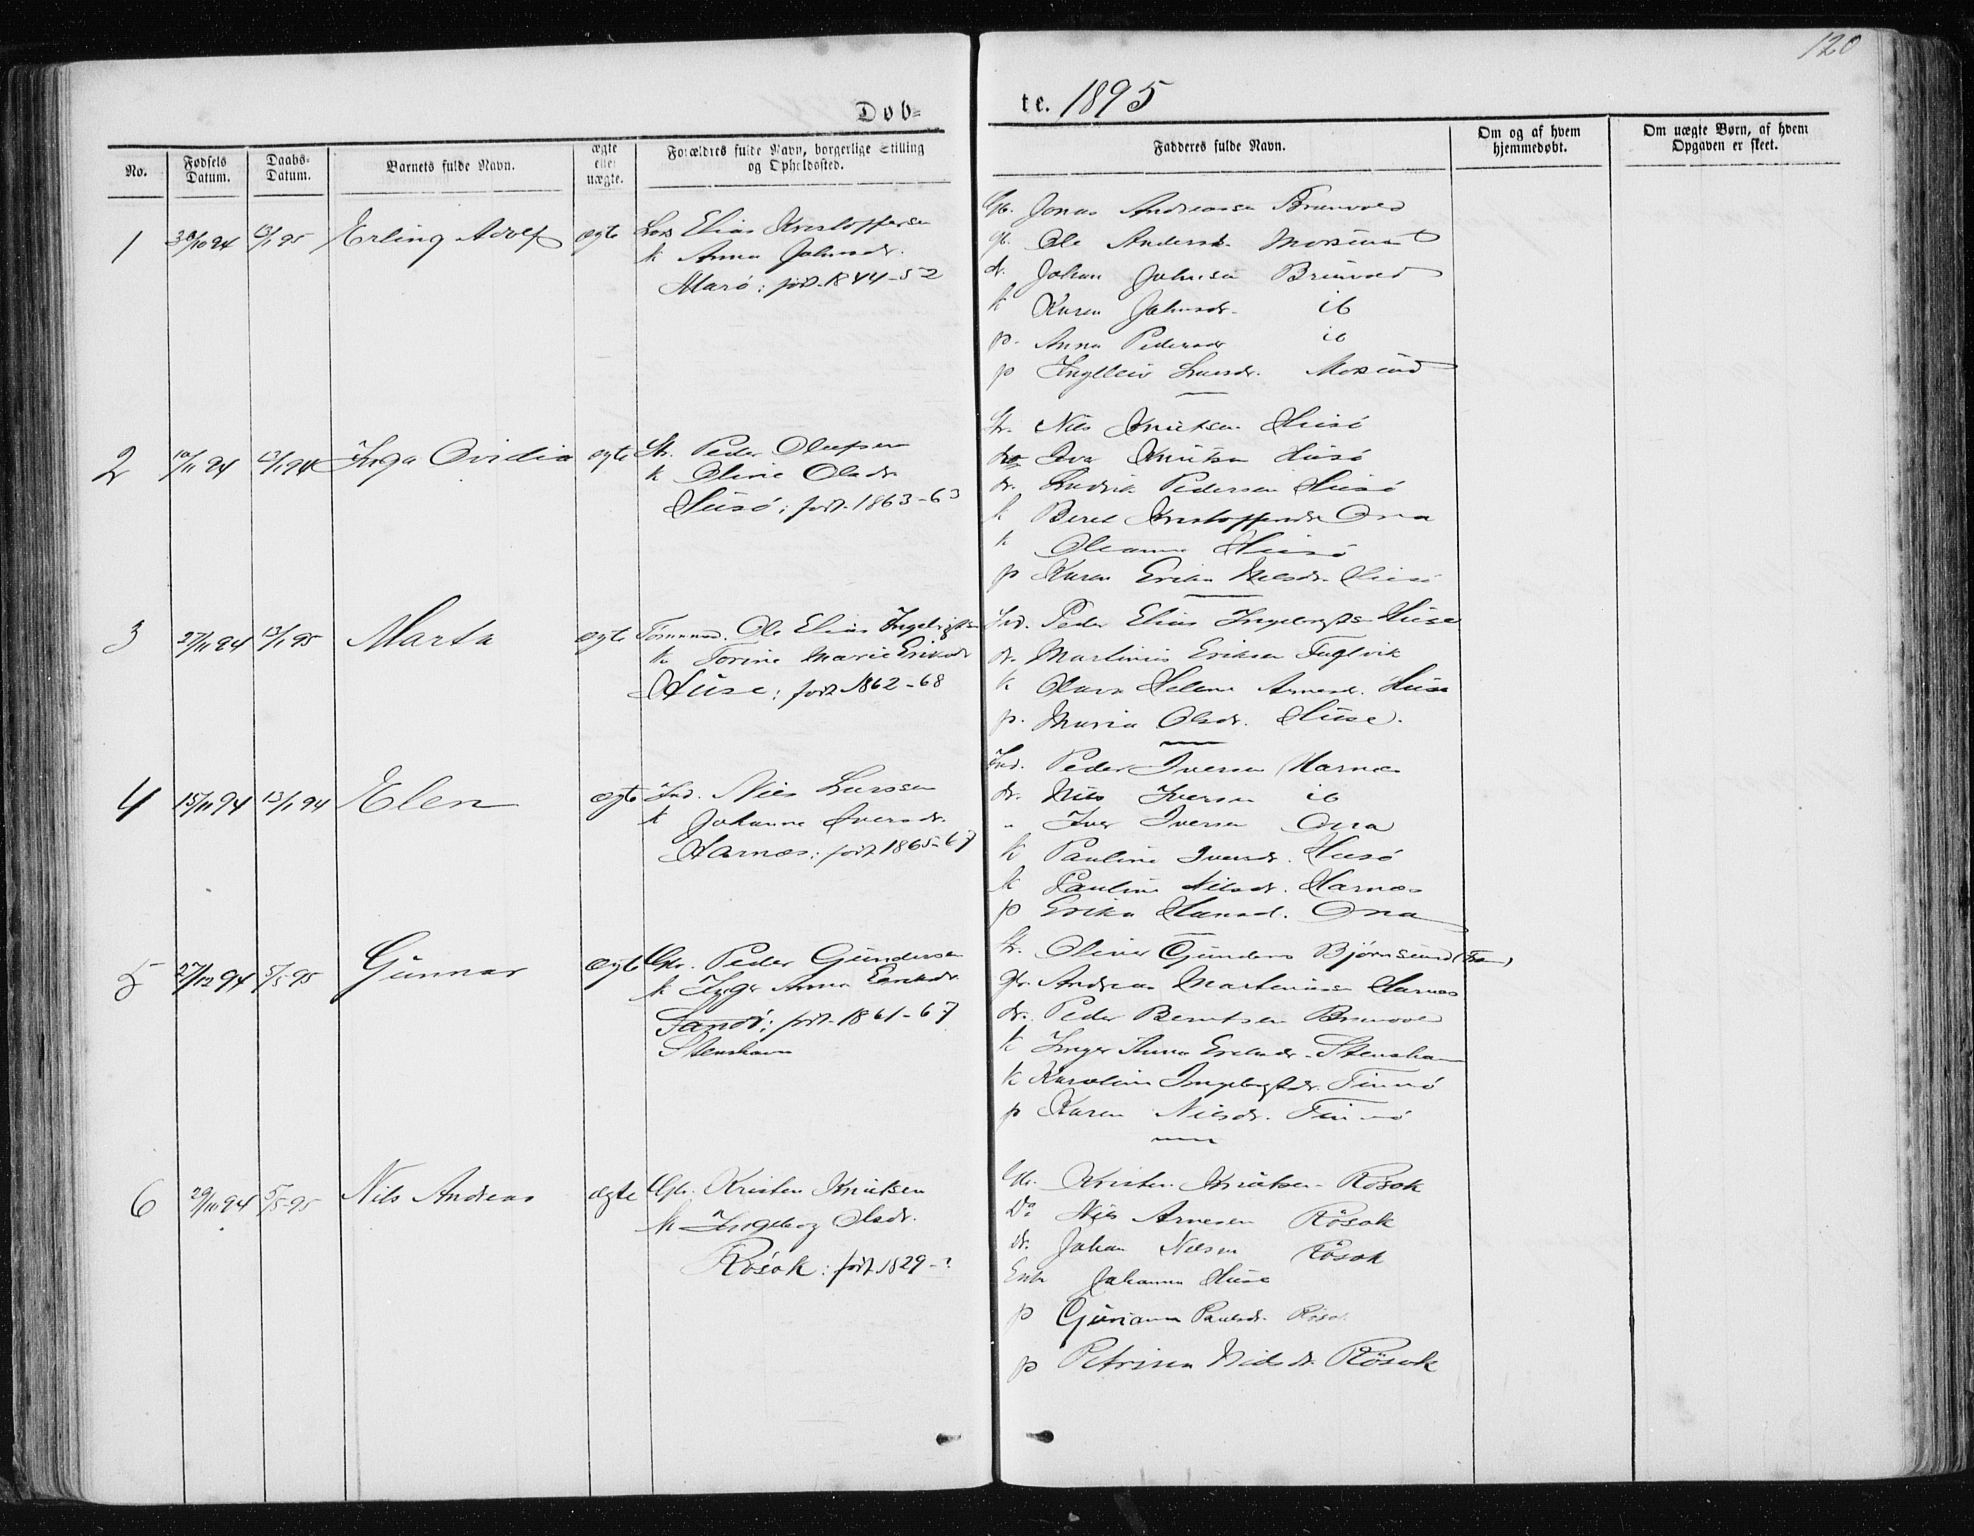 120
Døb=
te. 1895
No.
Fødsels Datum.
Daabs- Datum.
Barnets fulde Navn.
ægte eller uægte.
Forældres fulde Navn, borgerlige Stilling og Opholdssted.
Fadderes fulde Navn.
Om og af hvem hjemmedøbt.
Om uægte Børn, af hvem Opgaven er skeet.
1 30/10 94 13/1 95 Erling Adolf ægte Elias Kristoffersen
k Anna Johnsdr.
Marø: født 1844-52
Gbr. Jonas Andreassen Brunvold
gbr. Ole Anders. Morsund
dr. Johan Johnsen Brunvold
k Karen Johnsdr. ib
p. Anna Pedersdr ib
p Larsdr. Morsund
2 10/11 94 13/1 94 Inga Ovidia ægte Str. Peder Olufsen
k Oline Olsdr
Husø: født 1863-63
Str. Nils Knutsen Husø
Iver Knutsen Husø
dr. Pedersen Husø
k Beret Kristoffersdr Ona
k Oleanna Husø
p Karen Erika Nilsdr. Husø
3 27/11 94 13/1 95 Marta ægte Tømmmd. Ole Elias Ingebrigtsen
k Torine Marie Eriksdr
Huse: født 1862-68
Ind. Peder Elias Ingebrigtsen Huse
dr. Martinus Eriksen Fuglvik
k Olava Helene Arnesd. Huse
p. Maria Olsdr. Huse.
4 15/11 94 13/1 94 Elen ægte Ind. Nils Larssen
k Johanne Iversdr.
Harnæs: født 1865-67
Ind. Peder Iversen Harnæs
dr. Nils Iversen ib
" Iver Iversen Ona
k Pauline Iversdr. Husø
k Pauline Nilsdr. Harnæs
p Erika Hansd. Ona
5 27/12 94 5/5-95 Gunnar ægte Gbr. Peder Gundersen
k Inger Anna Eriksdr.
Sandø: født 1861-67
Stenshavn
Str. Oliver Gunders Bjørnsund (Fræn)
gbr. Andreas Martinussen Harnæs
dr. Peder Berntsen Brunvold
k Inger Anna Eriksdr. Stenshavn
k Karoline Ingebrigtsdr. Finnø
p Karen Nilsdr. Finnø
6 29/10 94 5/5-95 Nils Andreas ægte Gbr. Kristen Knutsen
k Ingeborg Olsdr.
Røsok: født 1829-?
Gbr. Kristen Knutsen Røsok
Do Nils Arnesen Røsok
dr. Johan Nilsen Røsok
Enke Johanna Huse
p Gurianna Paulsdr. Røsok
p Petrina Nilsdr. Røsok